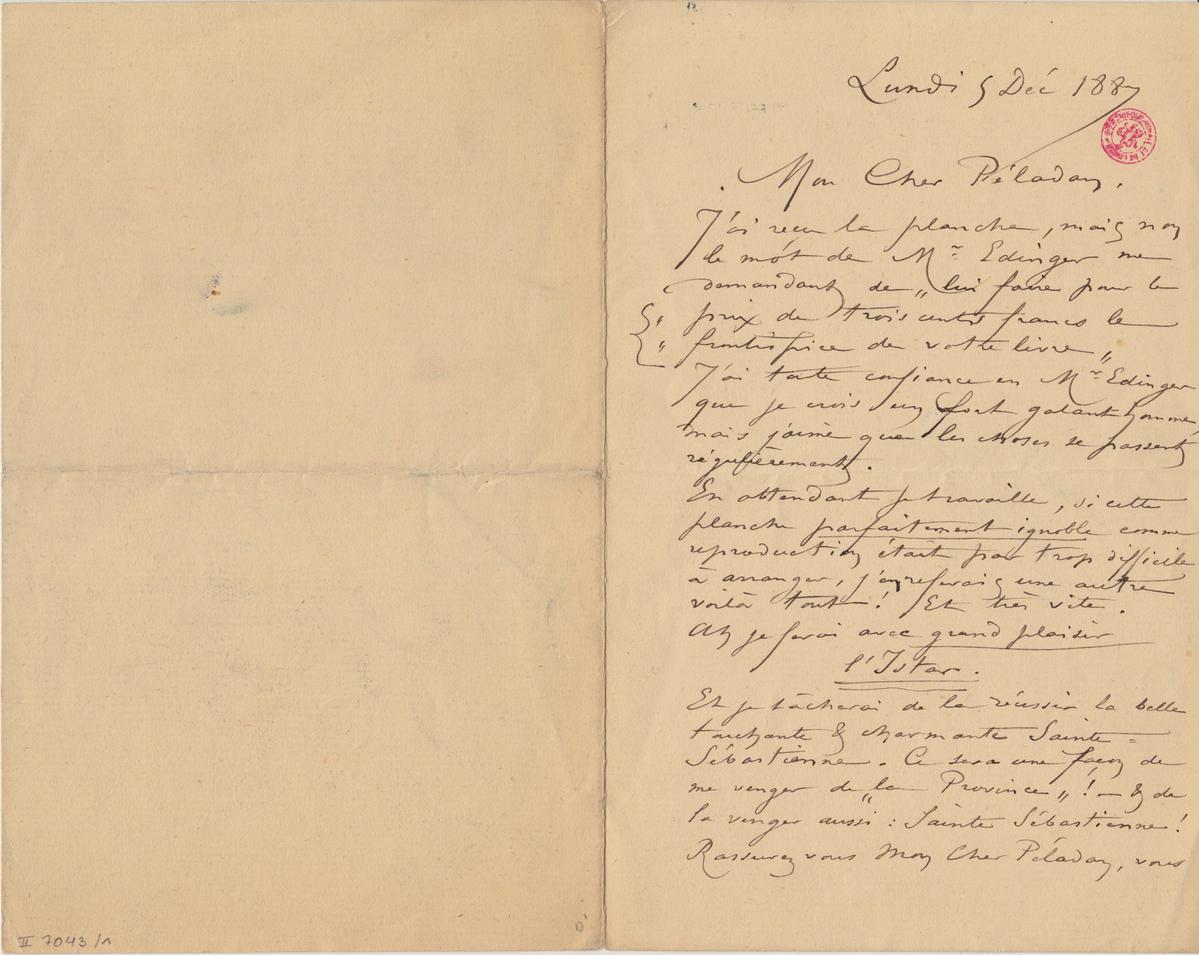 Lundi 5 Déc 1887
Mon Cher Péladan,
J'ai reçu la planche, mais non
le mot de Mr Edinger me
demandant de „lui faire pour le
„ prix de trois cents francs le
„ frontispice de votre livre„
J'ai toute confiance en Mr Edinger
que je crois un fort galant homme,
mais j'aime que les choses se passent
régulièrement.
En attendant je travaille, si cette
planche parfaitement ignoble comme
reproduction était par trop difficile
à arranger, j'en referais une autre
voilà tout! Et très vite.
je ferai avec grand plaisir
l'Istar.
Et je tâcherai de la réussir la belle
touchante & charmante Sainte=
Sébastienne. Ce sera une façon de
me venger de „la Province„! — & de
la venger aussi: Sainte Sébastienne!
Rassurez vous Mon Cher Péladan, vous
II 7043 /1